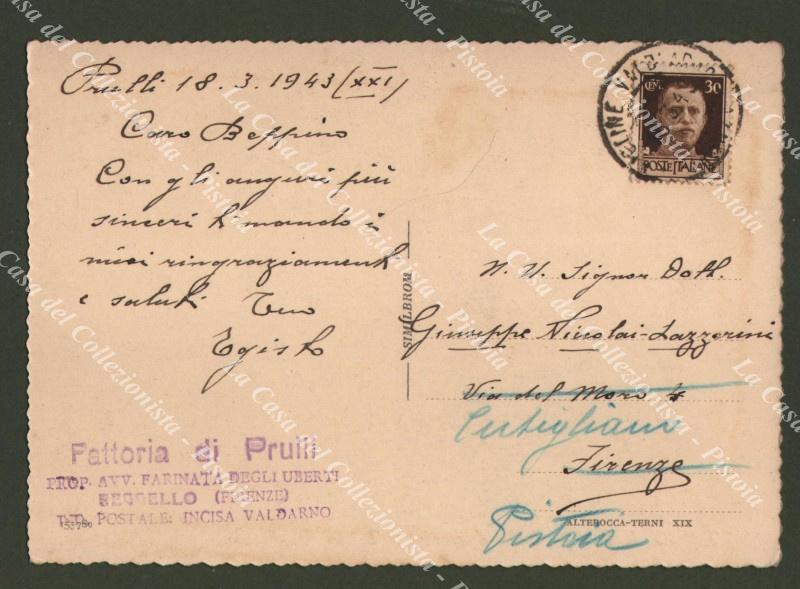 Prulli 18.3.1943 (XXI)
Caro Beppino
Con gli auguri più
sinceri ti mando i
miei ringraziamenti
e saluti Tuo
Egisto
Fattoria di Prulli
PROP. AVV. FARINATA DEGLI UBERTI
REGGELLO (FIRENZE)
POSTALE: INCISA VALDARNO
SIMILBROM
CENT. 30
POSTE ITALIANE
N. U. Signor Dott.
Giuseppe Nicolai-Lazzerini
Via del Moro 4
Cutigliano
Firenze
Pistoia
ALTEROCCA-TERNI XIX
La Casa del Collezionista - Pistoia